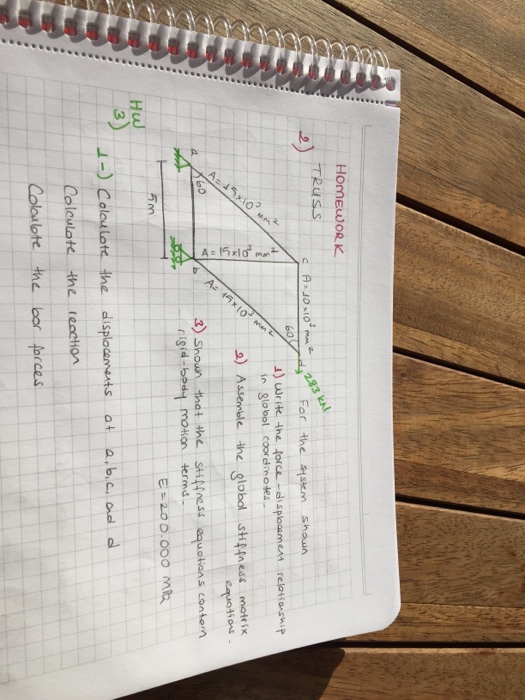 HOMEWORK
2) TRUSS
For the system shown
1) Write the force-displacement relationship
in global coordinates.
2) Assemble the global stiffness matrix
equations.
3) Shown that the stiffness equations contain
rigid-body motion terms.
E=200.000 MPa
c
A=10x10³ mm²
60
d
283 kN
A=15x10³ mm²
A=15x10³ mm²
A=15x10³ mm²
a
60
b
5m
HW
3) 1-) Calculate the displacements at a,b,c, and d
Calculate the reaction
Calculate the bar forces